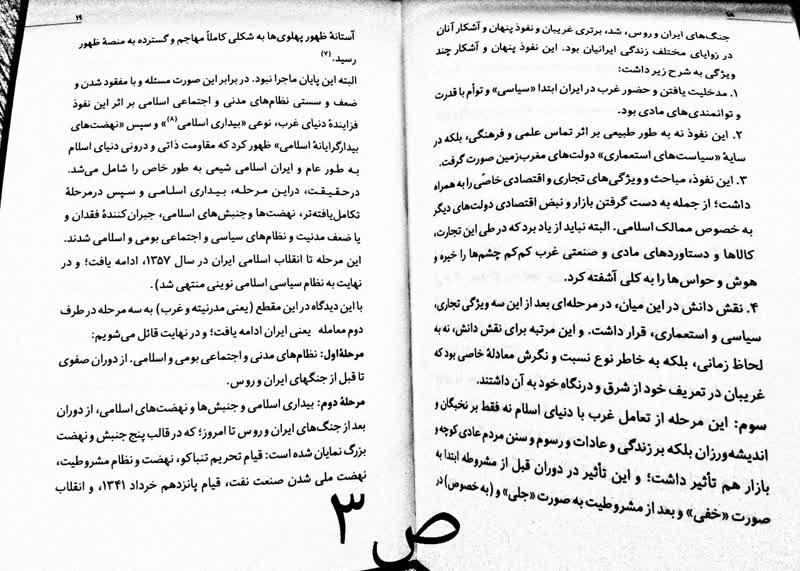 ۱۸
جنگ‌های ایران و روس، شد، برتری غربیان و نفوذ پنهان و آشکار آنان
در زوایای مختلف زندگی ایرانیان بود. این نفوذ پنهان و آشکار چند
ویژگی به شرح زیر داشت:
۱. مدخلیت یافتن و حضور غرب در ایران ابتدا «سیاسی» و توأم با قدرت
و توانمندی‌های مادی بود.
۲. این نفوذ نه به طور طبیعی بر اثر تماس علمی و فرهنگی، بلکه در
سایهٔ «سیاست‌های استعماری» دولت‌های مغرب‌زمین صورت گرفت.
۳. این نفوذ، مباحث و ویژگی‌های تجاری و اقتصادی خاصّی را به همراه
داشت؛ از جمله به دست گرفتن بازار و نبض اقتصادی دولت‌های دیگر
به خصوص ممالک اسلامی. البته نباید از یاد برد که در طی این تجارت،
کالاها و دستاوردهای مادی و صنعتی غرب کم‌کم چشم‌ها را خیره و
هوش و حواس‌ها را به کلی آشفته کرد.
۴. نقش دانش در این میان، در مرحله‌ای بعد از این سه ویژگی تجاری،
سیاسی و استعماری، قرار داشت. و این مرتبه برای نقش دانش، نه به
لحاظ زمانی، بلکه به خاطر نوع نسبت و نگرش معادلهٔ خاصی بود که
غربیان در تعریف خود از شرق و درنگاه خود به آن داشتند.
سوم: این مرحله از تعامل غرب با دنیای اسلام نه فقط بر نخبگان و
اندیشه‌ورزان بلکه بر زندگی و عادات و رسوم و سنن مردم عادی کوچه و
بازار هم تأثیر داشت؛ و این تأثیر در دوران قبل از مشروطه ابتدا به
صورت «خفی» و بعد از مشروطیت به صورت «جلی» و (به خصوص) در
۱۹
آستانهٔ ظهور پهلوی‌ها به شکلی کاملاً مهاجم و گسترده به منصهٔ ظهور
رسید.(۷)
البته این پایان ماجرا نبود. در برابر این صورت مسئله و با مفقود شدن و
ضعف و سستی نظام‌های مدنی و اجتماعی اسلامی بر اثر این نفوذ
فزایندهٔ دنیای غرب، نوعی «بیداری اسلامی(۸)» و سپس «نهضت‌های
بیدارگرایانهٔ اسلامی» ظهور کرد که مقاومت ذاتی و درونی دنیای اسلام
به طور عام و ایران اسلامی شیعی به طور خاص را شامل می‌شد.
درحقیقت، دراین مرحله، بیداری اسلامی و سپس درمرحلهٔ
تکامل‌یافته‌تر، نهضت‌ها وجنبش‌های اسلامی، جبران‌کنندهٔ فقدان و
یا ضعف مدنیت و نظام‌های سیاسی و اجتماعی بومی و اسلامی شدند.
این مرحله تا انقلاب اسلامی ایران در سال ۱۳۵۷، ادامه یافت؛ و در
نهایت به نظام سیاسی اسلامی نوینی منتهی شد).
با این دیدگاه در این مقطع (یعنی مدرنیته و غرب) به سه مرحله در طرف
دوم معامله یعنی ایران ادامه یافت؛ و در نهایت قائل می‌شویم:
مرحلهٔ اول: نظام‌های مدنی و اجتماعی بومی و اسلامی. از دوران صفوی
تا قبل از جنگهای ایران و روس.
مرحلهٔ دوم: بیداری اسلامی و جنبش‌ها و نهضت‌های اسلامی، از دوران
بعد از جنگ‌های ایران و روس تا امروز؛ که در قالب پنج جنبش و نهضت
بزرگ نمایان شده است: قیام تحریم تنباکو، نهضت و نظام مشروطیت،
نهضت ملی شدن صنعت نفت، قیام پانزدهم خرداد ۱۳۴۱، و انقلاب
ص ۳